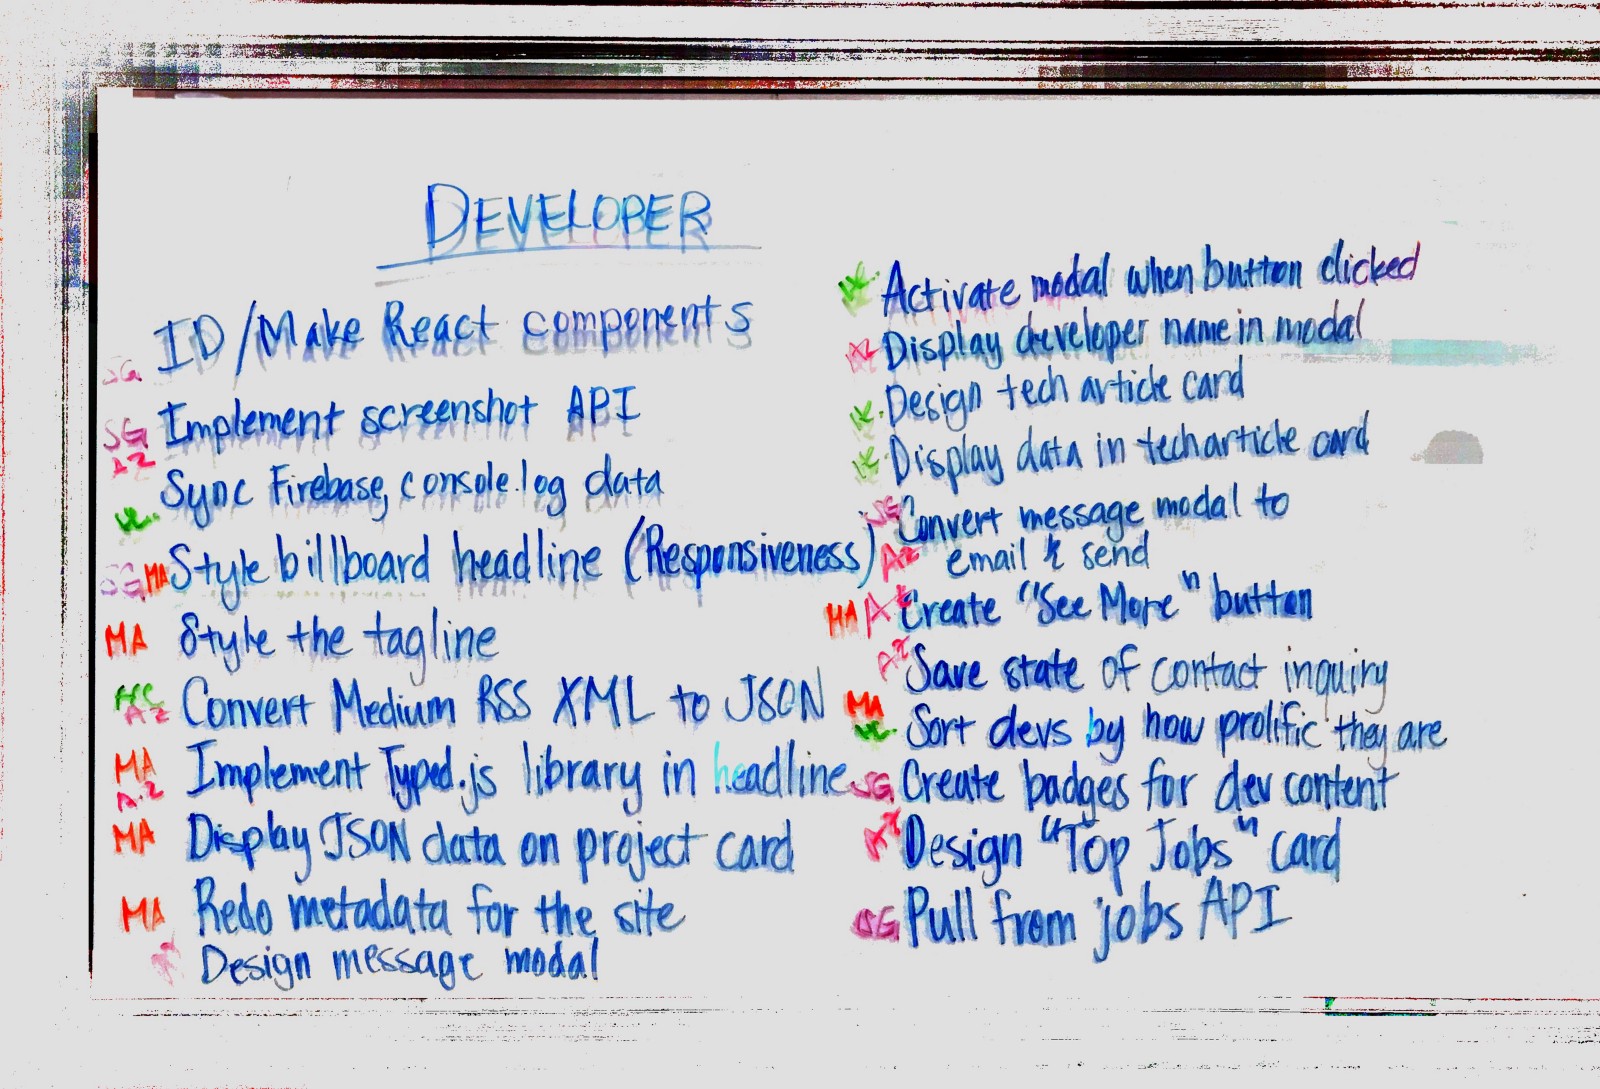 DEVELOPER
SG ID/Make React components
SG Implement screenshot API
AZ
Sync Firebase, console.log data
SG MA Style billboard headline (Responsiveness)
MA Style the tagline
AZ Convert Medium RSS XML to JSON
MA Implement Typed.js library in headline
AZ
MA Display JSON data on project card
MA Redo metadata for the site
Design message modal
Activate modal when button clicked
AZ Display developer name in modal
Design tech article card
Display data in tech article card
SG Convert message modal to
AZ email & send
MA AZ Create "See More" button
AZ Save state of contact inquiry
MA
Sort devs by how prolific they are
SG Create badges for dev content
AZ Design "Top Jobs" card
SG Pull from jobs API